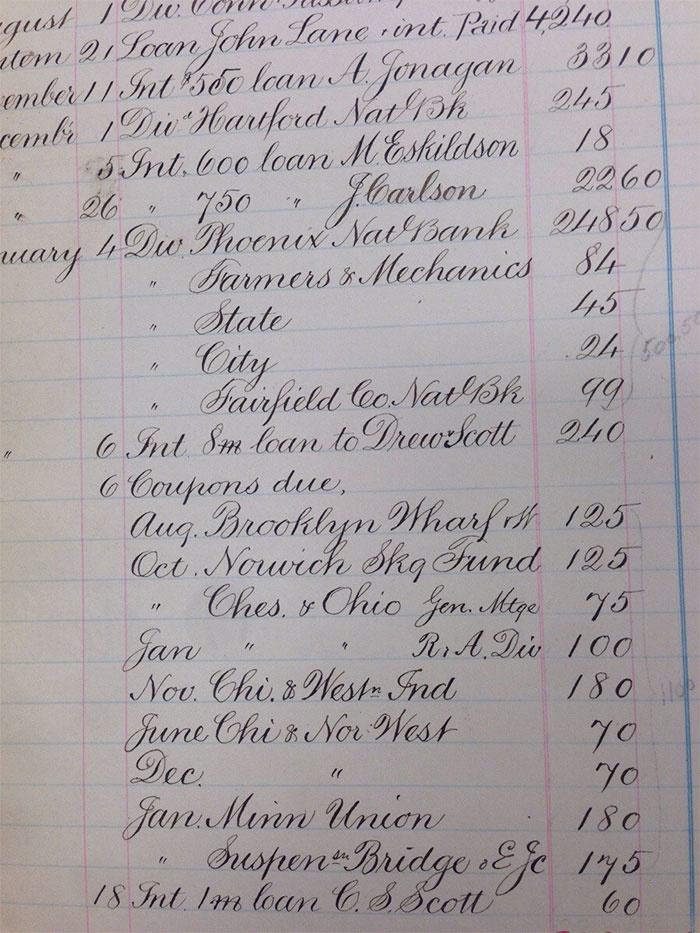 gust 1 Div. Conn
tem 21 Loan John Lane & int. Paid 4,240
ember 11 Int $550 loan A. Jonagan 33 10
cembr 1 Div Hartford Natl Bk 245
" 5 Int. 600 loan M. Eskildson 18
" 26 " 750 " J. Carlson 22 60
nuary 4 Div. Phoenix Natl Bank 248 50
" Farmers & Mechanics 84
" State 45
" City 24
" Fairfield Co. Natl Bk 99
" 6 Int 8m loan to Drew & Scott 240
6 Coupons due,
Aug. Brooklyn Wharf & W 125
Oct. Norwich Skg Fund 125
" Ches. & Ohio Gen. Mtge 75
Jan " " R & A. Div 100
Nov. Chi. & Westn Ind 180
June Chi & Nor. West 70
Dec. " 70
Jan. Minn Union 180
" Suspensn Bridge & E Jc 175
18 Int. 1m loan C. S. Scott 60